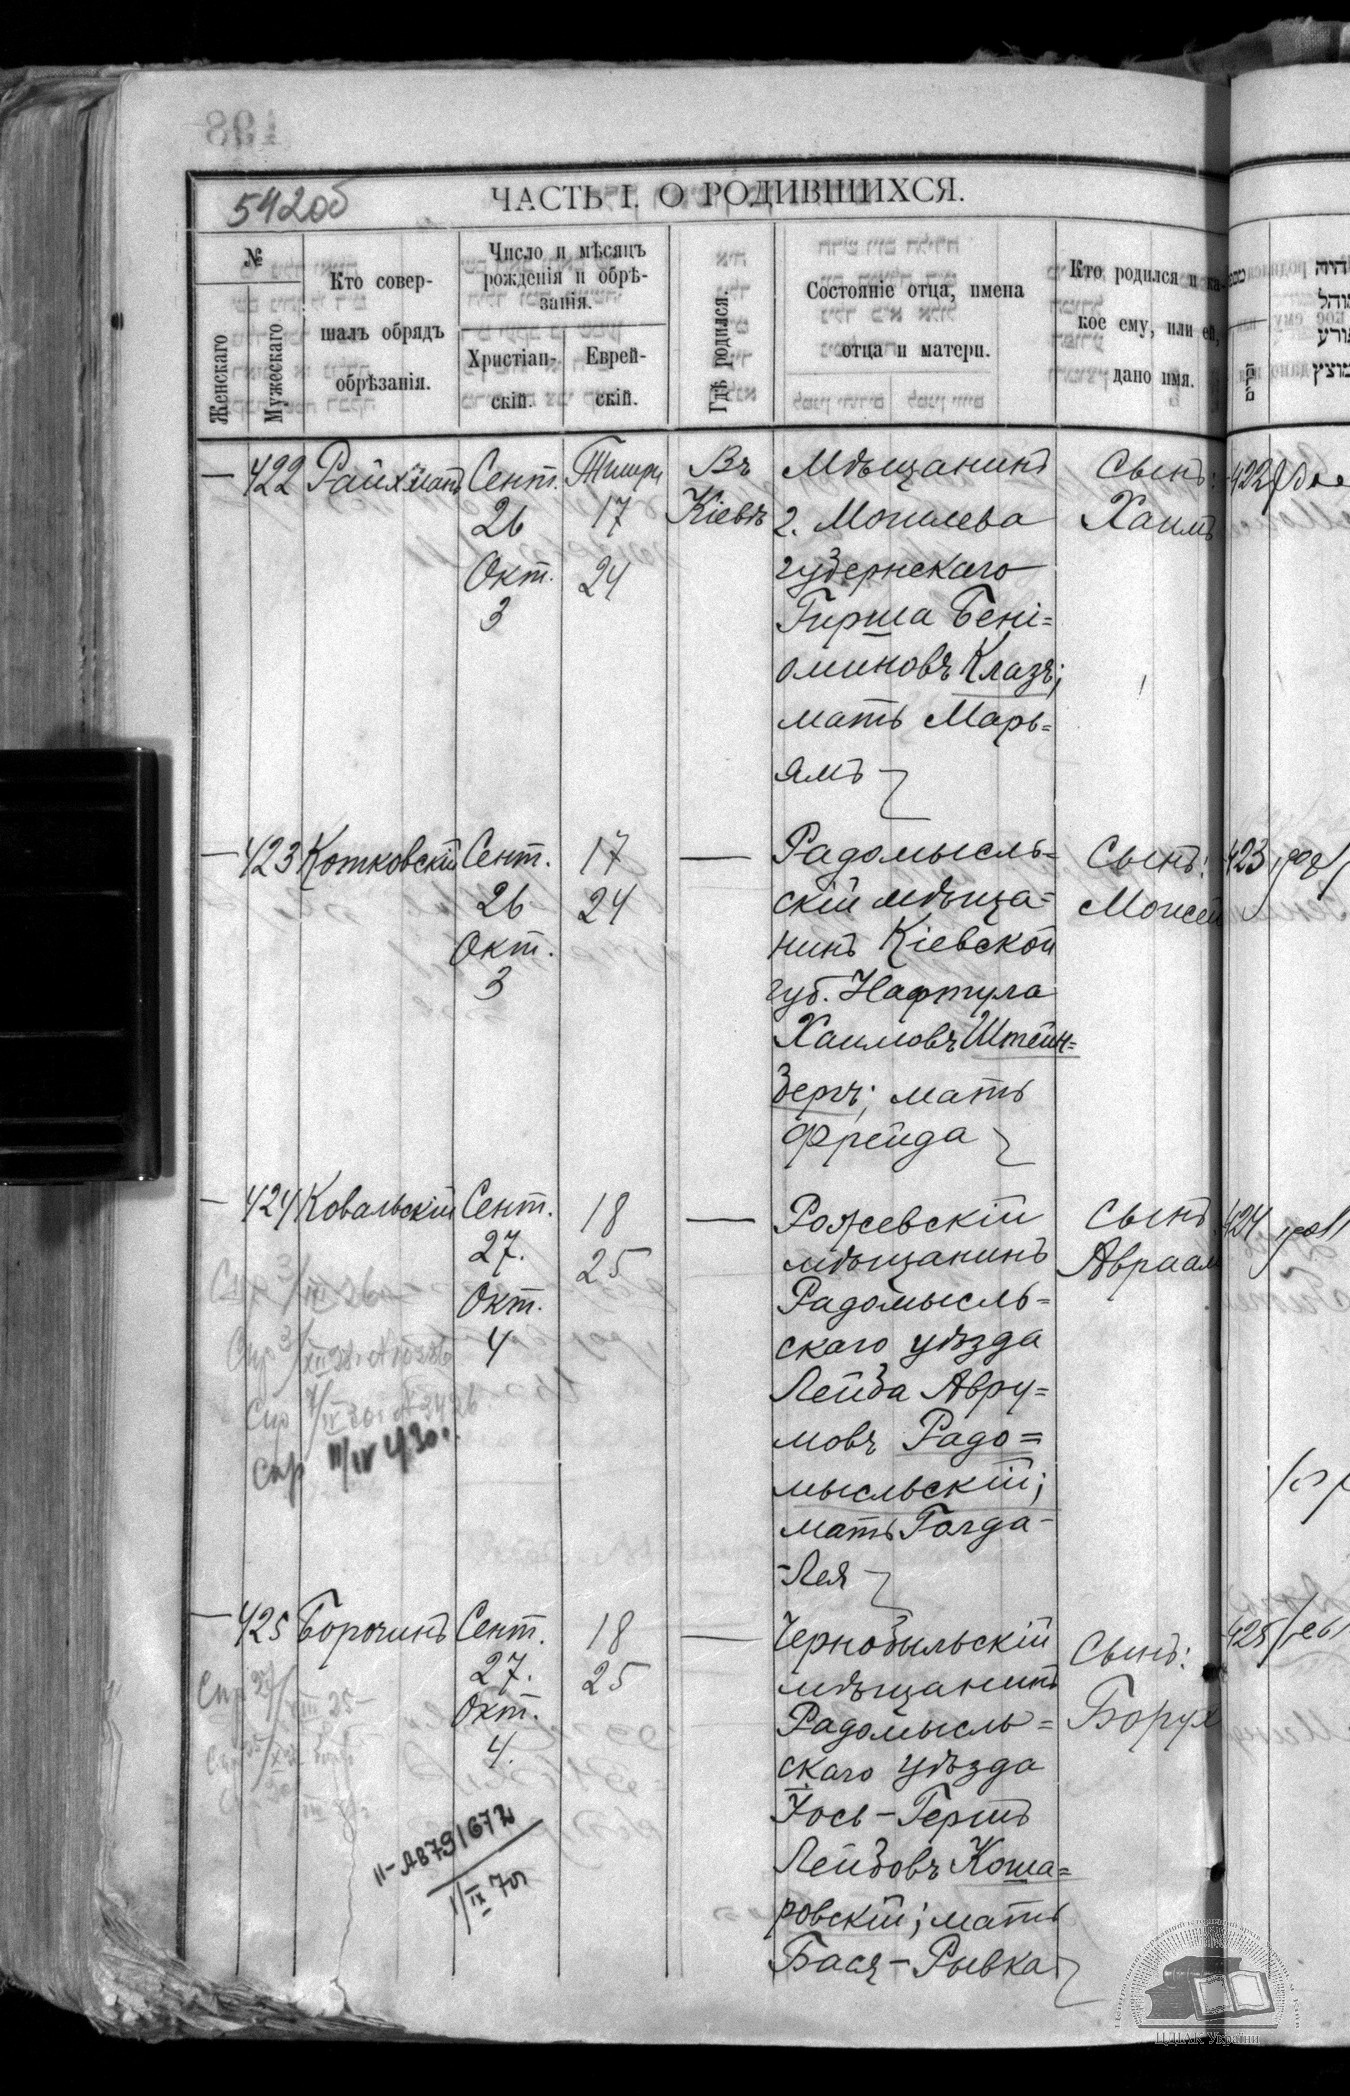 542об
ЧАСТЬ I. О РОДИВШИХСЯ.
№
Женскаго
Мужескаго
Кто совер-
шалъ обрядъ
обрѣзанія.
Число и мѣсяцъ
рожденія и обрѣ-
занія.
Христіан-
скій.
Еврей-
скій.
Гдѣ родился.
Состояніе отца, имена
отца и матери.
Кто родился и ка-
кое ему, или ей,
дано имя.
— 422
Райхманъ
Сент.
26
Окт.
3
Тишри
17
24
Въ
Кіевѣ
Мѣщанинъ
г. Могилева
губернскаго
Гирша Бені-
оминовъ Клазъ;
мать Марь-
ямъ
Сынъ:
Хаимъ
— 423
Котковскій
Сент.
26
Окт.
3
17
24
—
Радомысль-
скій мѣща-
нинъ Кіевской
губ. Нафтула
Хаимовъ Штейн-
бергъ; мать
Фрейда
Сынъ:
Моисей
— 424
Ковальскій
Сент.
27.
Окт.
4
18
25
—
Рожевскій
мѣщанинъ
Радомысль-
скаго уѣзда
Лейба Авру-
мовъ Радо-
мысльскій;
мать Голда-
-Лея
Сынъ
Авраам
— 425
Борочинъ
Сент.
27.
Окт.
4.
18
25
—
Чернобыльскій
мѣщанинъ
Радомысль-
скаго уѣзда
Іось-Гершъ
Лейбовъ Коша-
ровскій; мать
Бася-Рывка
Сынъ:
Борух
422
423
424
425
ЦДІАК України